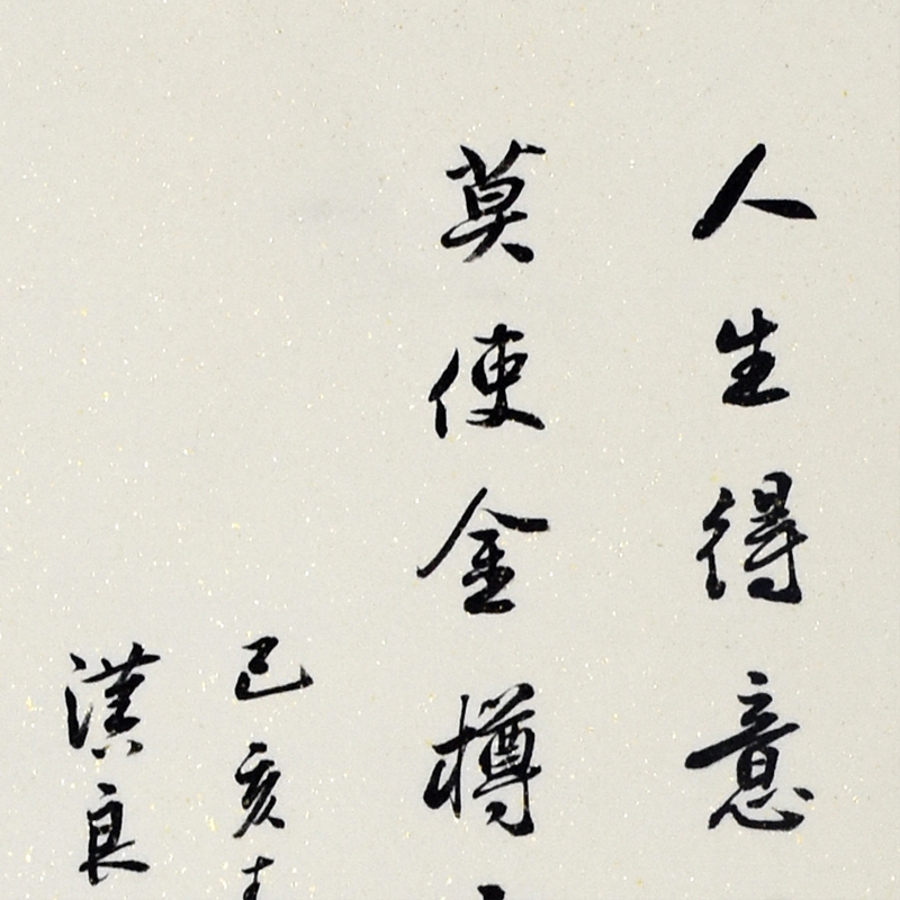 人生得意
莫使金樽
己亥
漢良